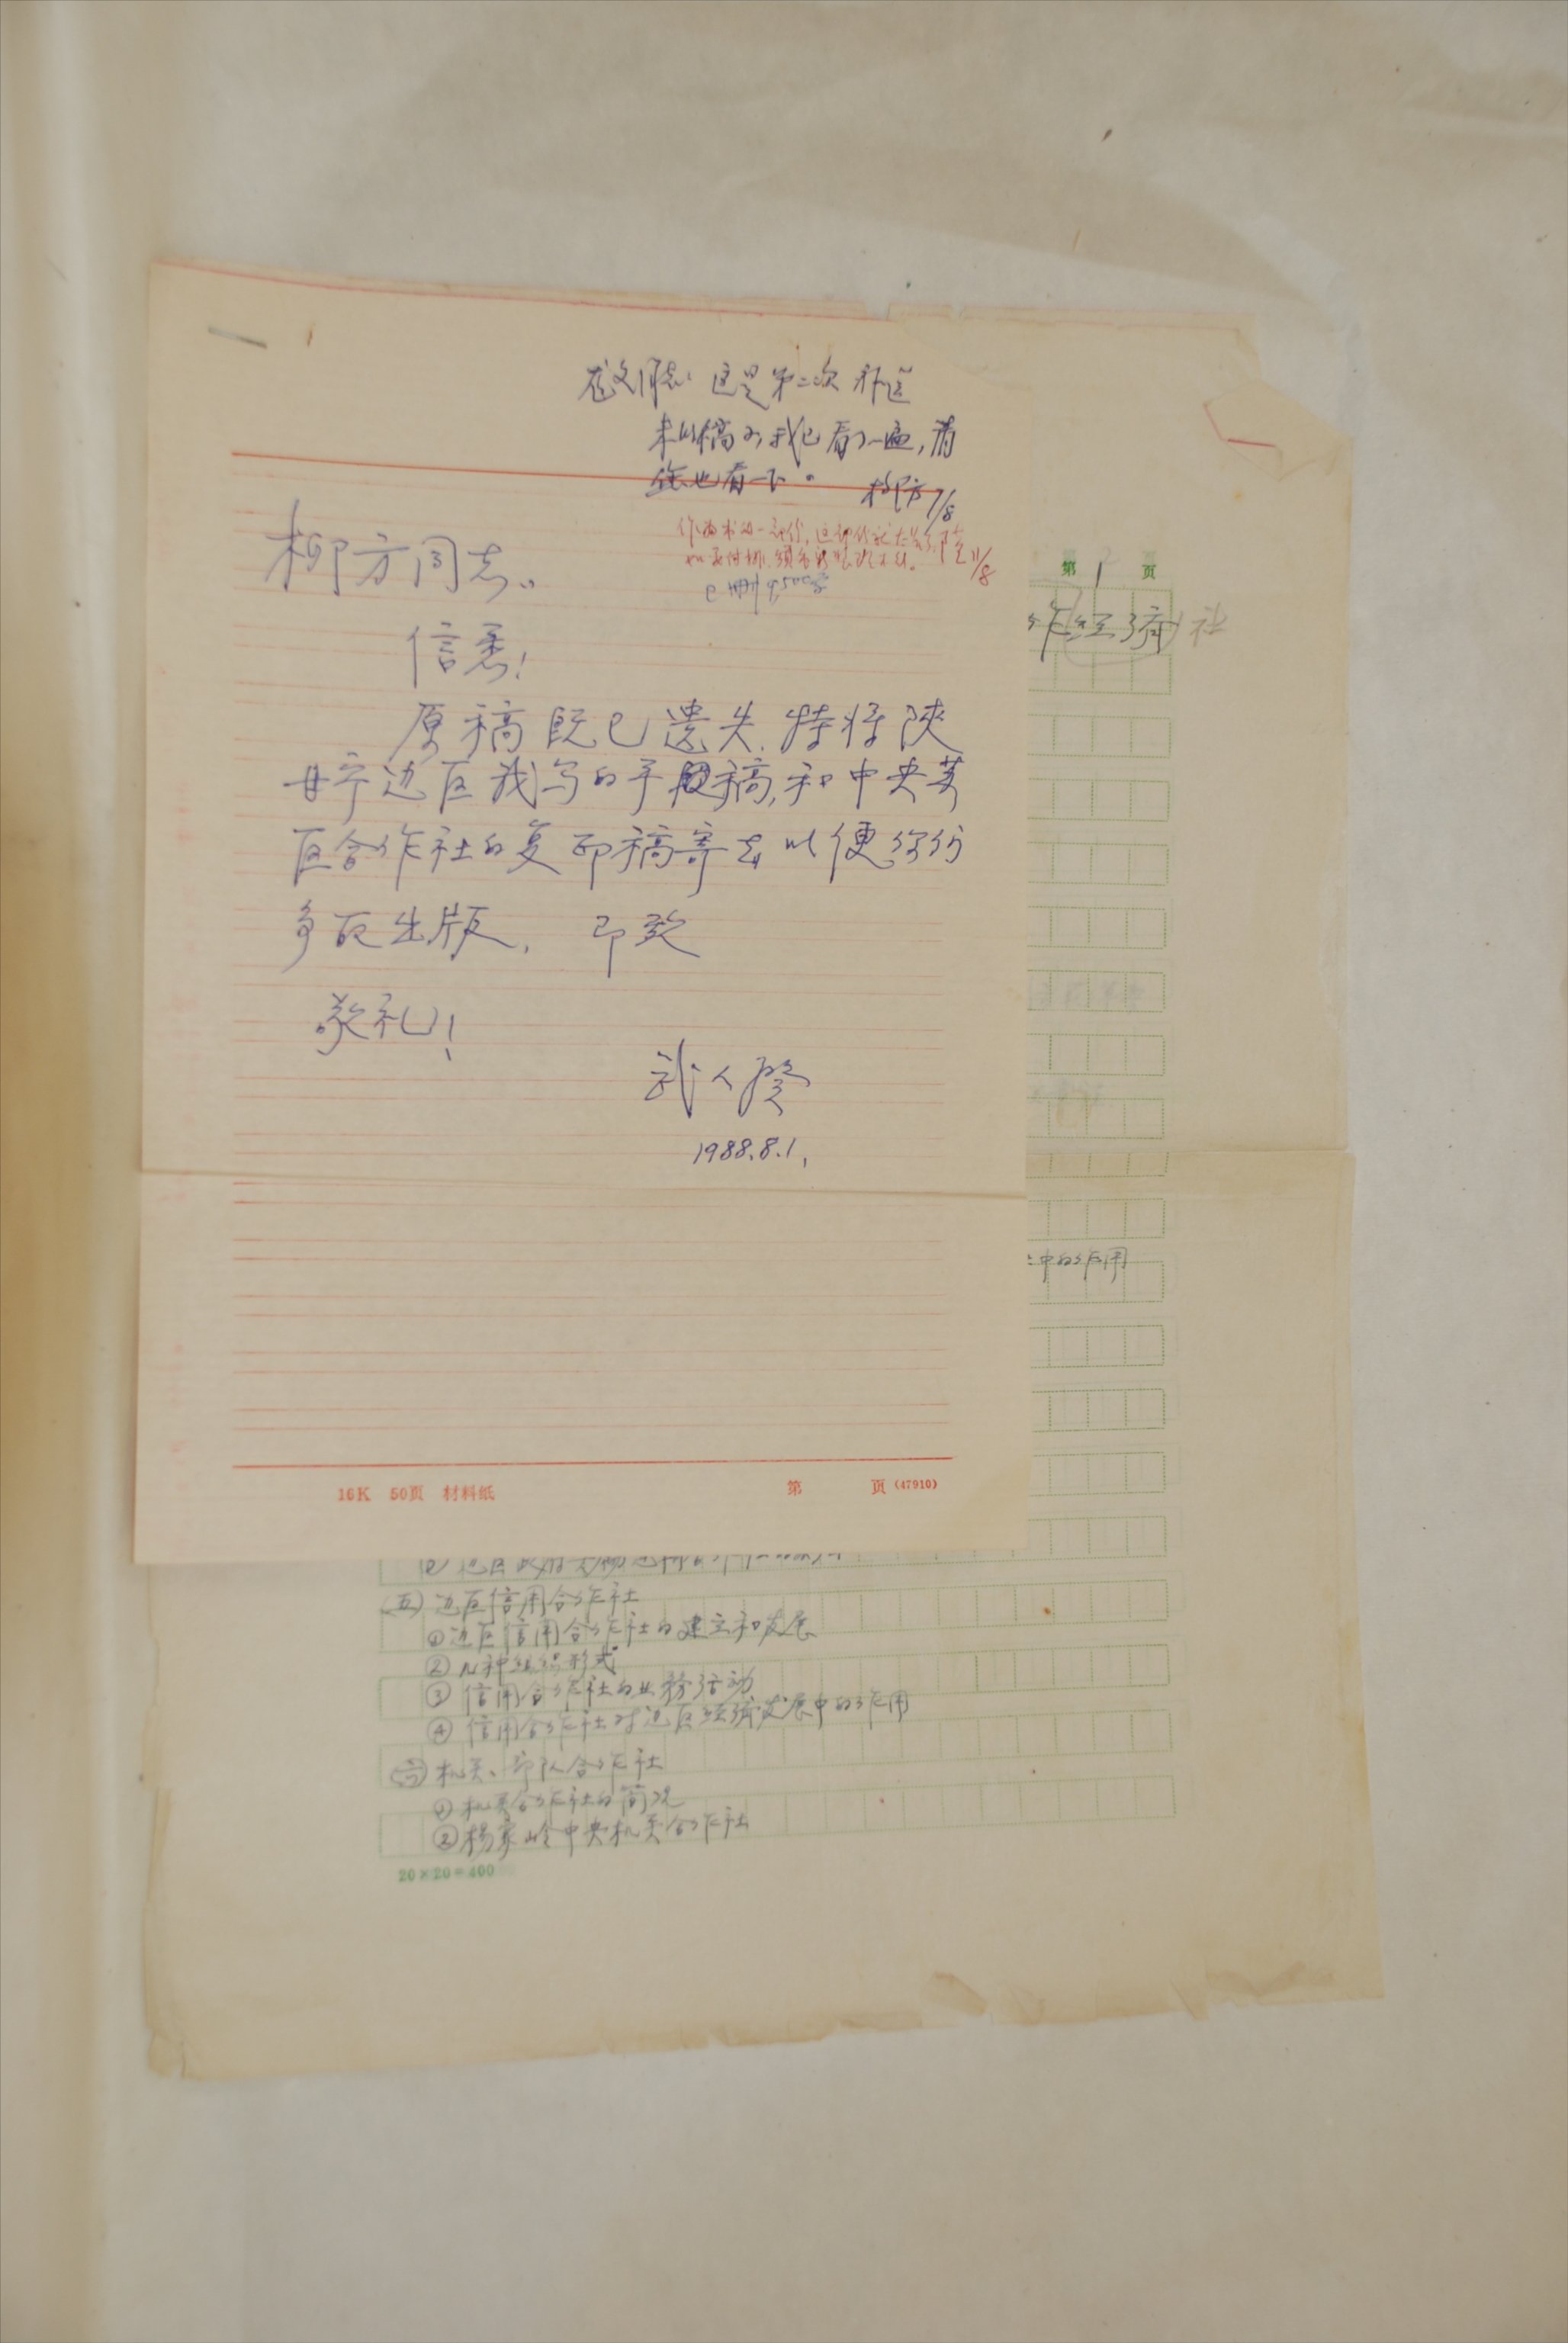 龙文同志：这是第二次 补送
来的稿子，我已看了一遍，请
您也看一下。 柳方 7/8
11/8
已删9,500字
柳方同志：
信悉！
原稿既已遗失，特将陕
甘宁边区我写的手稿，和中央苏
区合作社的复印稿寄去以便你们
争取出版， 即致
敬礼！
武人癸
1988.8.1，
16K 50页 材料纸 第 页 (47910)
第 1 页
作经济 社
中的作用
(五) 边区信用合作社
① 边区信用合作社的建立和发展
② 几种组织形式
③ 信用合作社的业务活动
④ 信用合作社对边区经济发展中的作用
(六) 机关、部队合作社
① 机关合作社的简况
② 杨家岭中央机关合作社
20×20=400